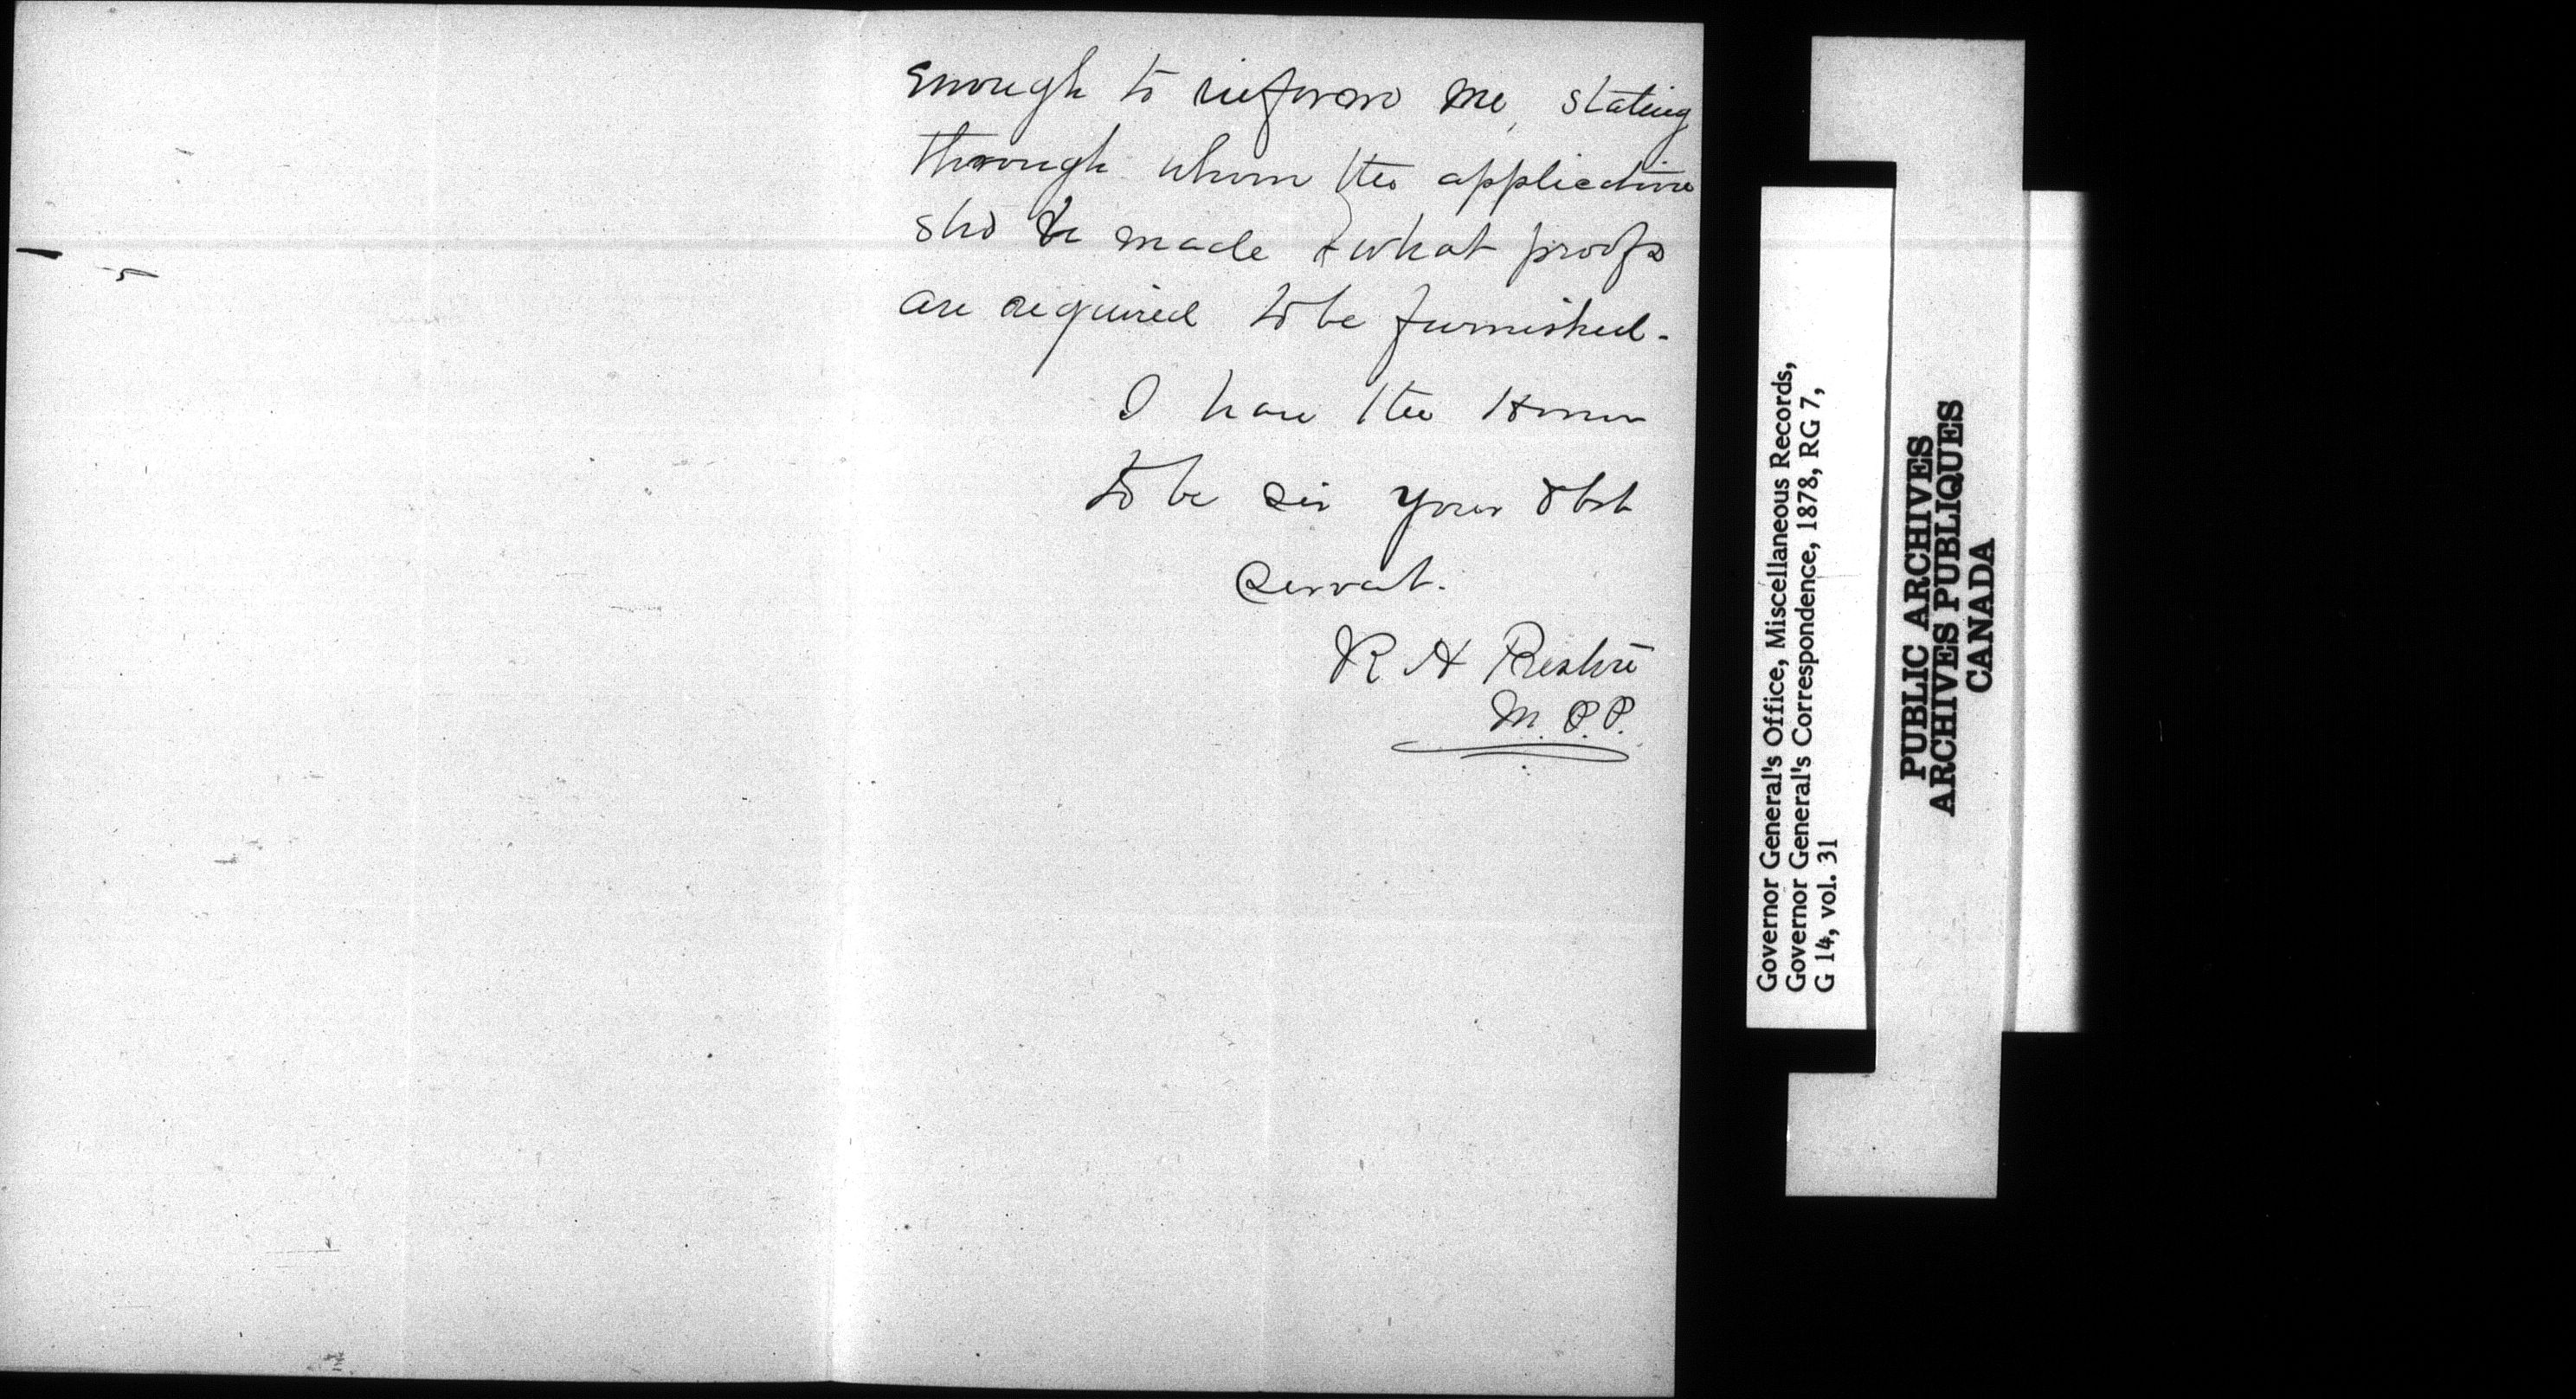 enough to inform me, stating
through whom the application
shd be made & what proofs
are required to be furnished.
I have the Honor
to be Sir your Obt
Servant.
R H Preston
M.P.P.
Governor General's Office, Miscellaneous Records,
Governor General's Correspondence, 1878, RG 7,
G 14, vol. 31
PUBLIC ARCHIVES
ARCHIVES PUBLIQUES
CANADA